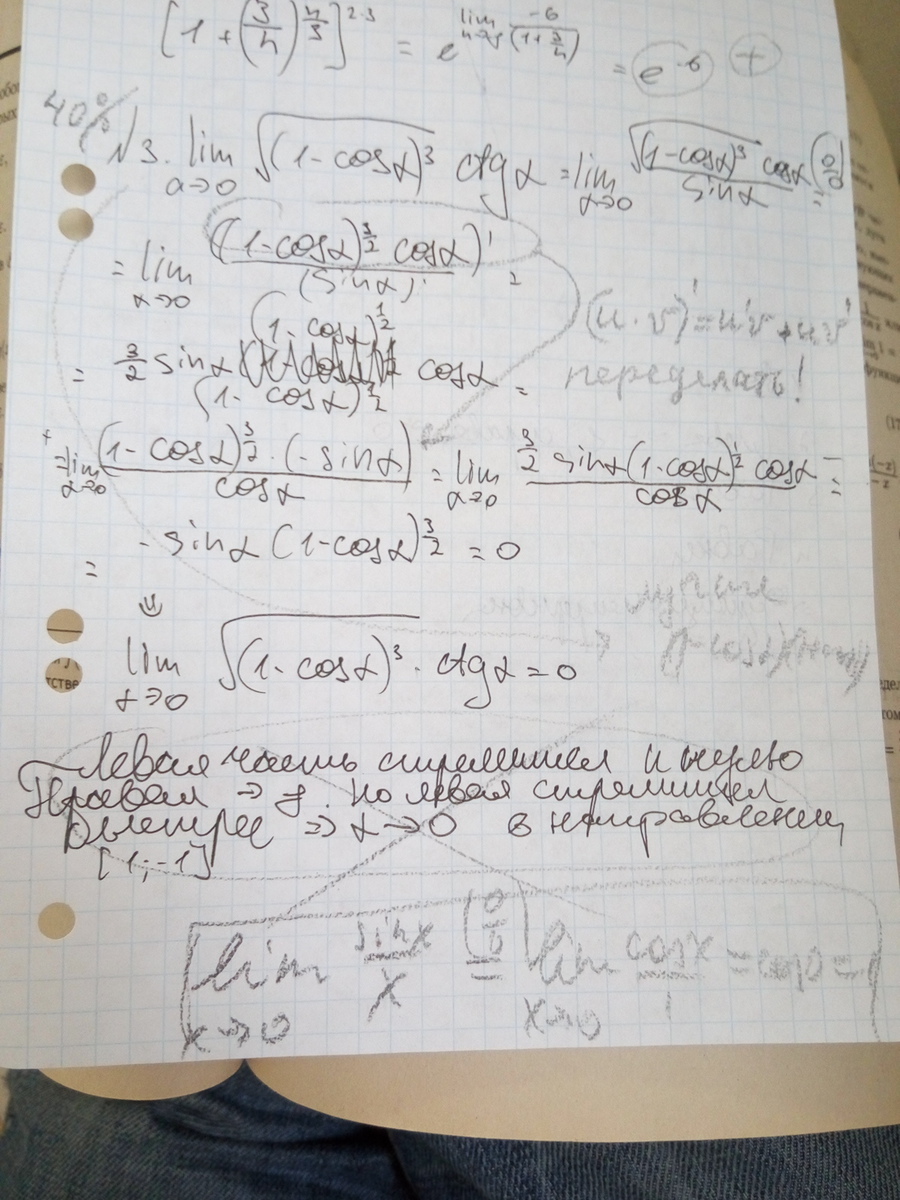 [1 + (3/n)^{n/3}]^{2·3} = e^{lim n→∞ -6/(1+3/n)} = e^{-6} +
40%
№3. lim α→0 √(1-cosα)³ ctgα = lim α→0 √(1-cosα)³ cosα / sinα (0/0) =
= lim α→0 ((1-cosα)^{3/2} cosα)' / (sinα)' =
(u·v)' = u'v + uv'
переделать!
(1-cosα)^{1/2}
= 3/2 sinα cosα =
(1-cosα)^{1/2}
= lim α→0 (1-cosα)^{3/2}·(-sinα) / cosα = lim α→0 3/2 sinα (1-cosα)^{1/2} cosα / cosα =
= -sinα (1-cosα)^{3/2} = 0
⇓
lim α→0 √(1-cosα)³ · ctgα = 0
Левая часть стремится к нулю
Правая → но левая стремится
быстрее ⇒ α→0 в направлении
[1;-1]
lim x→0 sinx/x (0/0) = lim x→0 cosx/1 = cos0 = 1